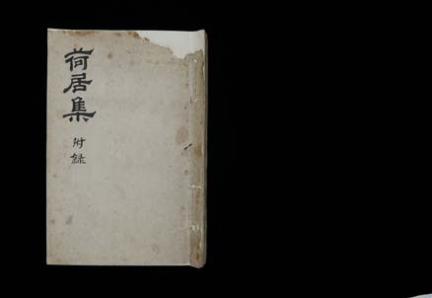 荷居集
附錄